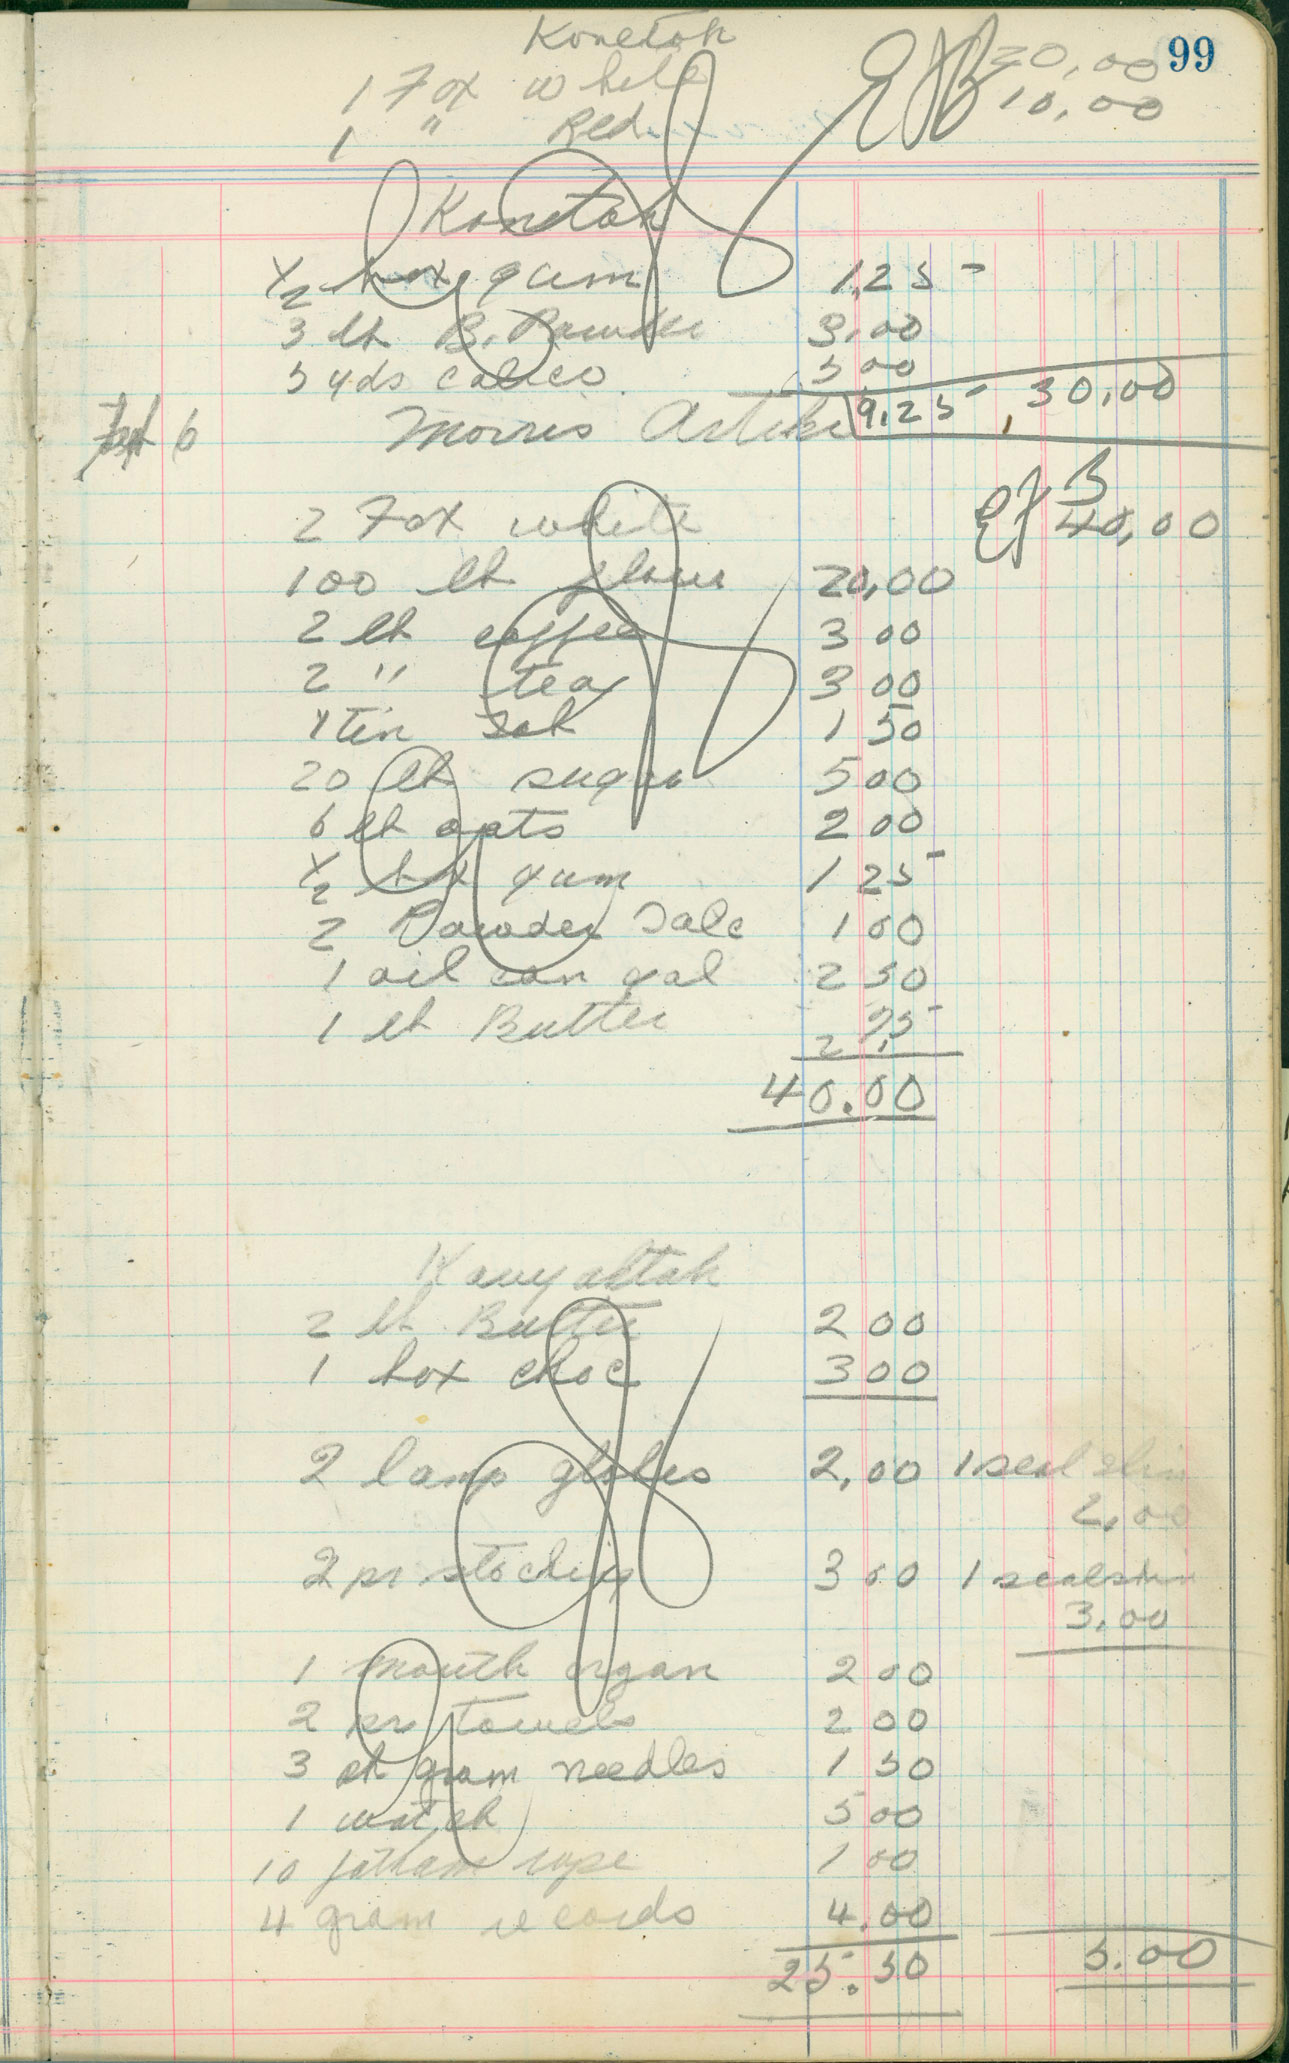 99
Konetok
1 Fox white 20,00
1 " Red 10,00
EJB
Konetok
½ box gum 1,25
3 lb B. Powder 3,00
5 yds calico 5 00
9,25 30,00
Feb 6 Morris
EJB
2 Fox white 40,00
100 lb flour 20,00
2 lb coffee 3 00
2 " tea 3 00
1 tin 1 50
20 lb sugar 5 00
6 lb oats 2 00
½ bx gum 1 25
2 Powder Talc 1 00
1 oil can gal 2 50
1 lb Butter 75
40.00
2 lb Butter 2 00
1 box choc 3 00
2 lamp globes 2,00 1 seal skin
2,00
2 pr 3 00 1 sealskin
3.00
1 mouth organ 2 00
2 pr towels 2 00
3 gram needles 1 50
1 watch 5 00
10 fatham rope 1 00
4 gram records 4.00
25.50 5.00